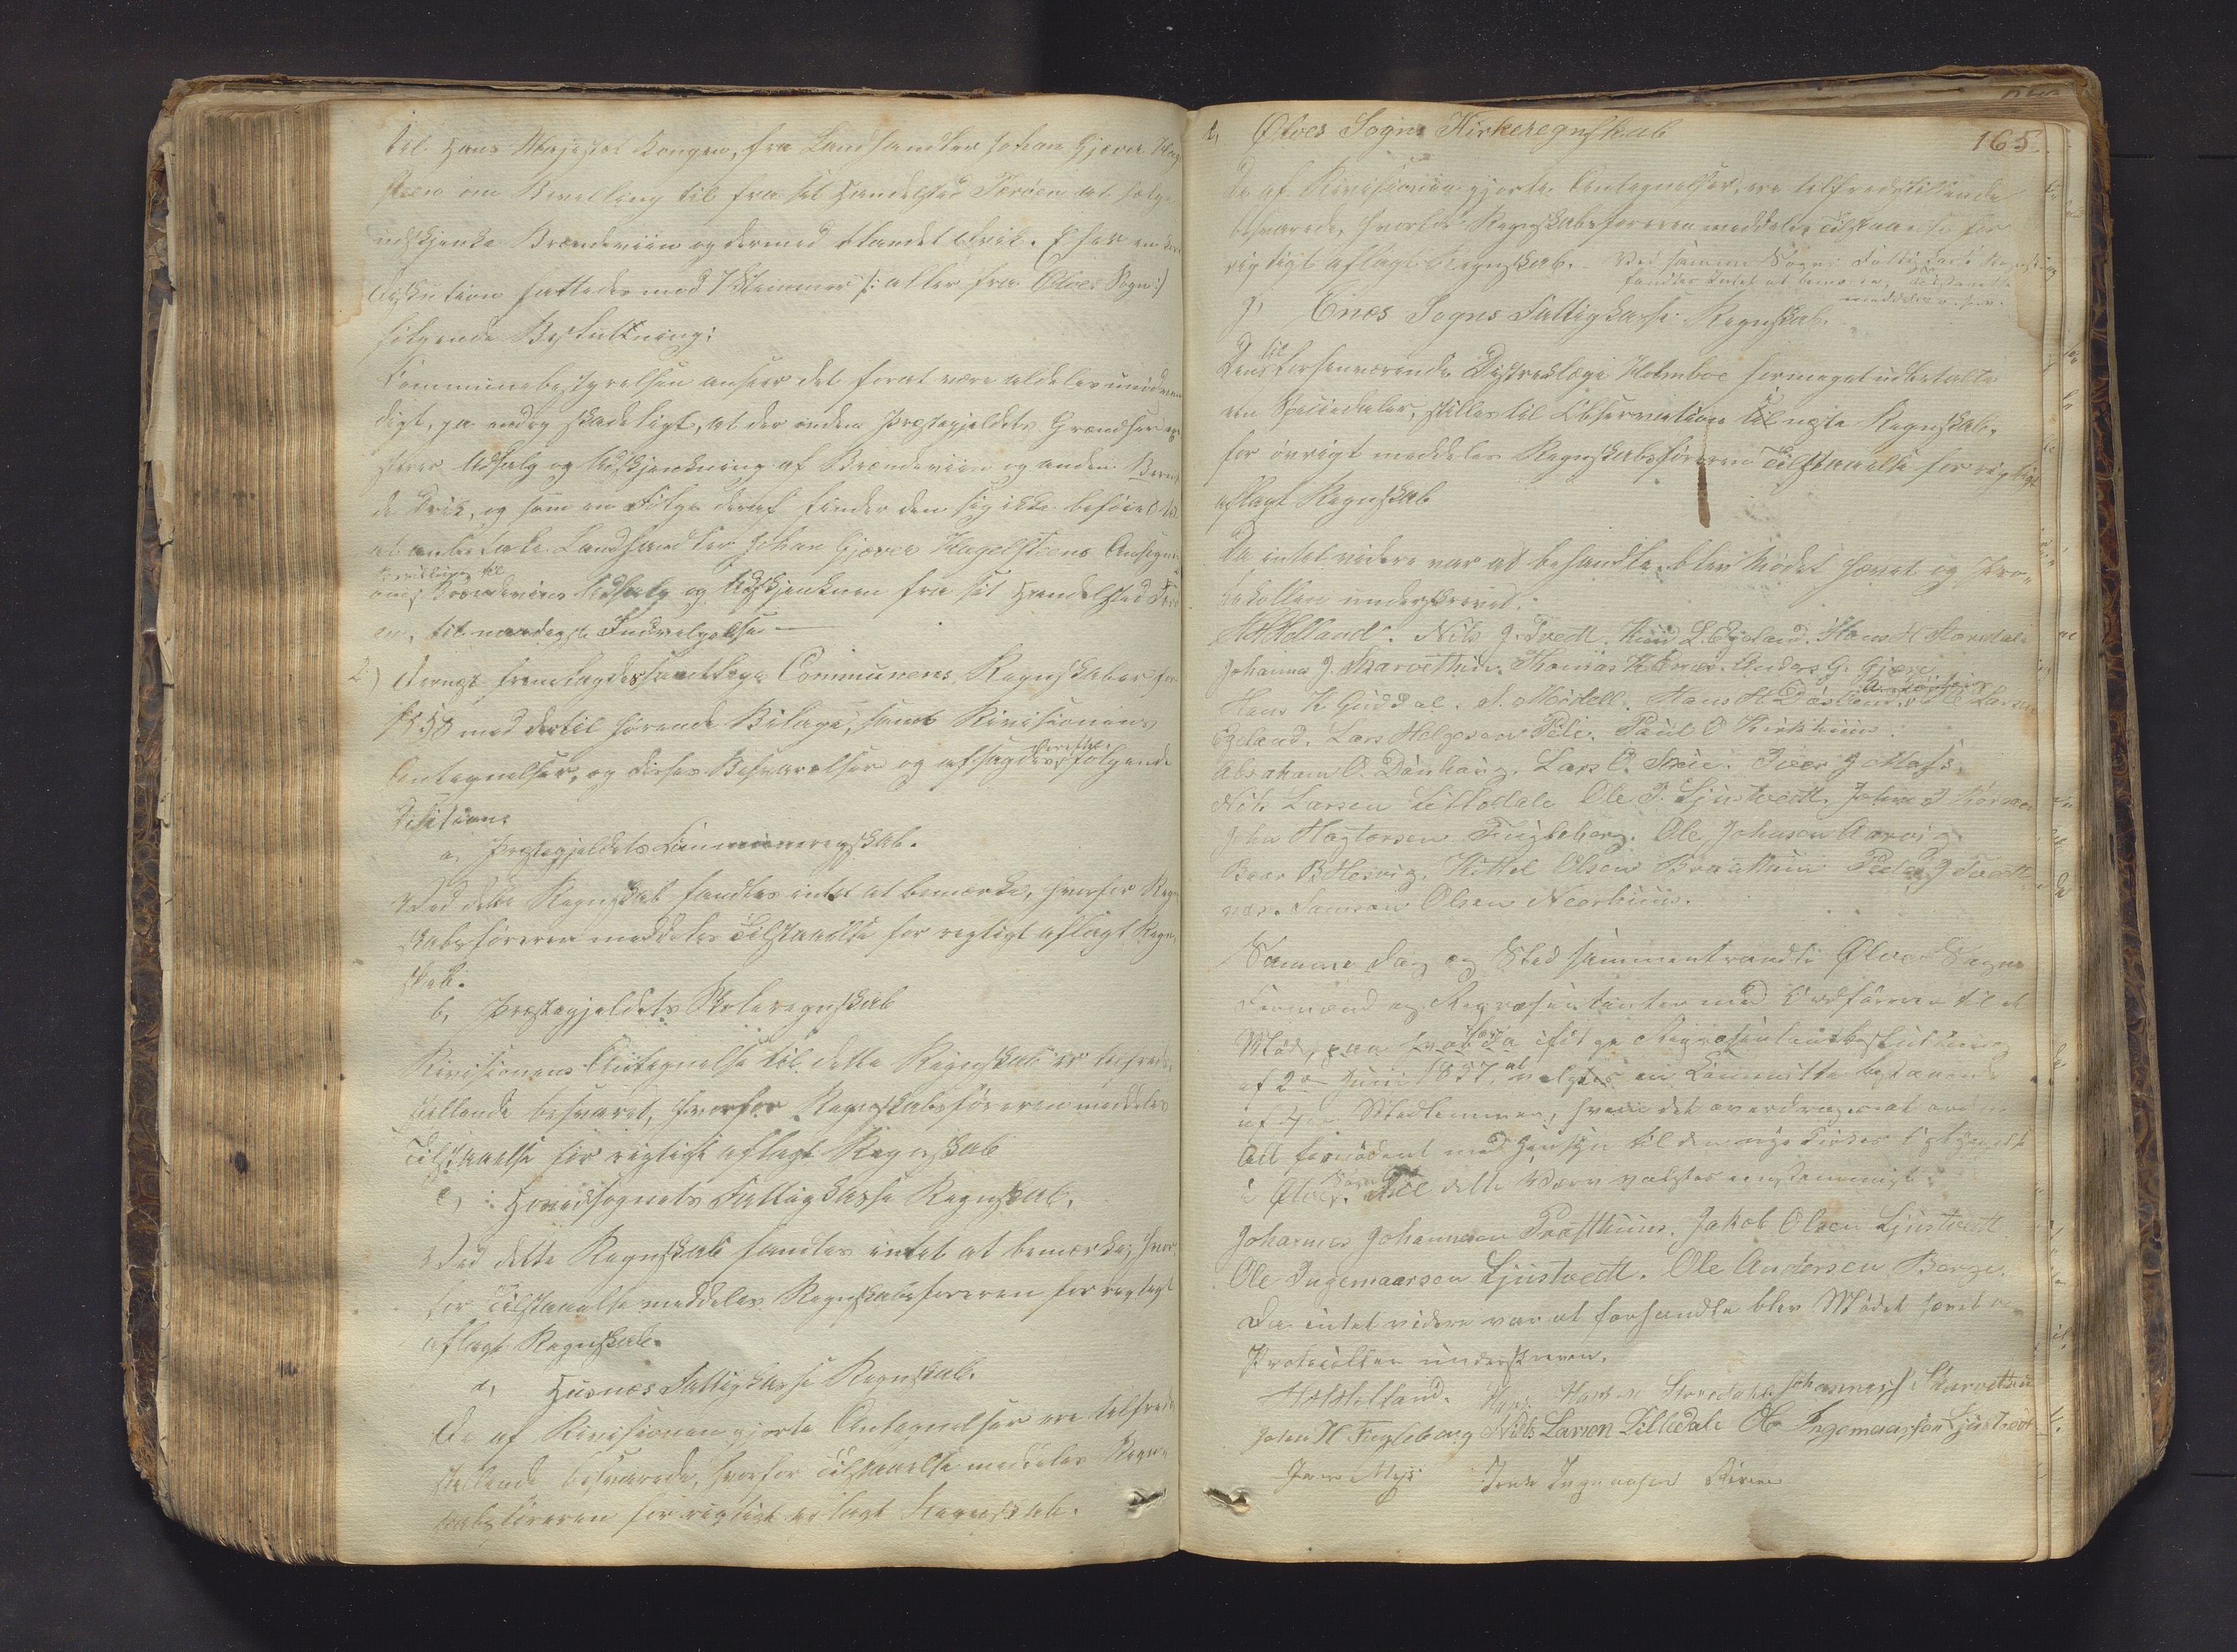 til Hans Majestæt Kongen, fra Landhandler Johan Gjæver Kagel
steen om Bevilling til fra sit Handelssted Terøen at sælge
udskjenke Brændeviin og dermed blandet Drik. Efter en kort
Diskution fattedes mod 7 Stemmer /: alle fra Ølves Sogn :/
følgende Beslutning:
Communebestyrelsen anseer det forat være aldeles unødven
digt, ja endog skadeligt, at der inden Præstegjeldets Grændser
Udsalg og Udskjenkning af Brændeviin og anden
de Drik, og som en Følge deraf finder den sig ikke beføiet til
at anbefale Landhandler Johan Gjæver Kagelsteens Ansøgning
Bevilling til
om Brændeviins Udsalg og Udskjenken fra sit Handelssted Terø
en, til naadigste Indvilgelse. —
2.) Dernæst fremlagdes samtlige Communens Regnskaber for
1858 med dertil hørende Bilage, samt Revisionens
Antegnelser, og disses Besvarelser og afsagdes derefter følgende
Desisioner
a, Præstegjeldets Communeregnskab.
Ved dette Regnskab fandtes intet at bemærke, hvorfor Regn
skabsføreren meddeles Tilstaaelse for rigtigt aflagt Regn
skab.
b, Præstegjeldets Skoleregnskab
Revisionens Antegnelse til dette Regnskab er tilfreds
stillende besvaret, hvorfor Regnskabsføreren meddeles
Tilstaaelse for rigtigt aflagt Regnskab
c, Hovedsognets Fattigkasse Regnskab.
Ved dette Regnskab fandtes intet at bemærke, hvor
for Tilstaaelse meddeles Regnskabsføreren for rigtigt
aflagt Regnskab.
d, Husnæs Fattigkasse Regnskab.
De af Revisionen gjorte Antegnelser ere tilfreds
stillende besvarede, hvorfor Tilstaaelse meddeles Regn
skabsføreren for rigtigt aflagt Regnskab.
165.
e, Ølves Sogns Kirkeregnskab
De af Revisionen gjorte Antegnelser, ere tilfredsstillende
besvarede, hvorfor Regnskabsføreren meddeles Tilstaaelse for
rigtigt aflagt Regnskab. Ved samme Sogns Fattigkasse Regnskab
fandtes Intet at bemærke,
meddeles
f, Enæs Sogns Fattigkasse Regnskab.
Den til forhenværende Distriktslæge Holmboe formeget udbetalte
een Speciedaler, stilles til Observation til næste Regnskab,
for øvrigt meddeles Regnskabsføreren Tilstaaelse for rigtigt
aflagt Regnskab
Da intet videre var at behandle, blev Mødet hævet og Pro-
tokollen underskrevet.
Helland. Nils J. Tvedt. Knud L. Egeland. Hans H Storedale
Johannes J. Skarvethun. Thomas H Enæs. Anders G. Gjære
Hans K. Guddal. S. Mørdell. Hans H Døsland. Larsen
Egeland. Lars Helgesen Teli. Paul O Kirkhuus.
Abraham O. Dønhaug. Lars O. Skeie. Iver J Møss.
Nils Larsen Lilledale Ole I. Ljustvedt, Johan
John Hagtorsen Fugleberg. Ole Johnsen Aarvig
Baar B Hesvig. Kittel Olsen Peder J Tvedt
næs. Samson Olsen Neerhuus.
Samme Dag og Sted sammentraadte Ølves Sogns
Formænd og Repræsentanter med Ordføreren til et
Møde, paa hvilket ifølge Repræsentantbeslutning
af 2den Juni 1857, valgtes en Committe bestaaende
af 4re Medlemmer, hvem det overdrages at ordne
Alt fornødent med Hensyn til den nye Kirkes
i Ølves Sogn. Til dette Hverv valgtes eenstemmigt:
Johannes Johannesen Træthuus, Jakob Olsen Ljustvedt
Ole Ingemaarsen Ljustvedt. Ole Andersen Berge.
Da intet videre var at forhandle blev Mødet hævet og
Protocollen underskreven.
Helland. Hans H Storedahl Johannes J Skarvethun
John H Fugleberg Nils Larson Lilledale Ole Ingemaarson Ljustvedt
Iver Møss